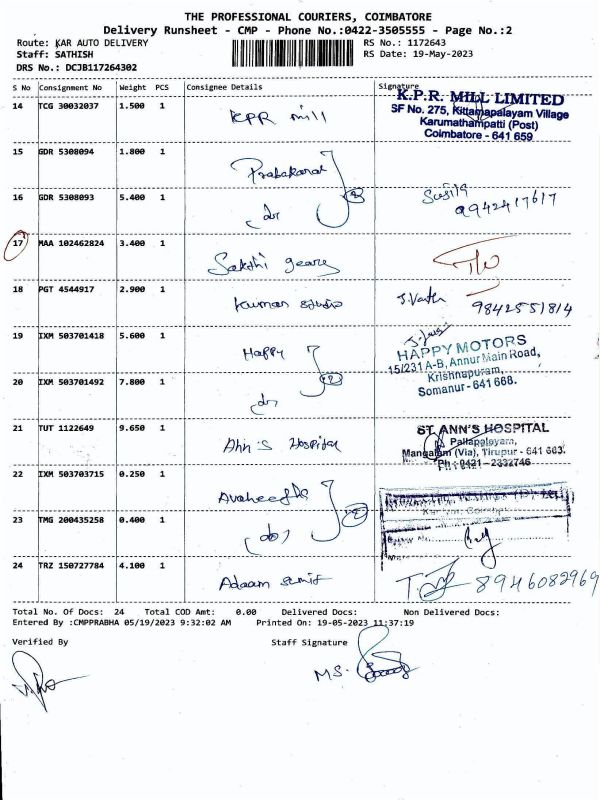 THE PROFESSIONAL COURIERS, COIMBATORE
Delivery Runsheet - CMP - Phone No.:0422-3505555 - Page No.:2
Route: KAR AUTO DELIVERY RS No.: 1172643
Staff: SATHISH RS Date: 19-May-2023
DRS No.: DCJB117264302
S No Consignment No Weight PCS Consignee Details Signature
14 TCG 30032037 1.500 1 KPR mill K.P.R. MILL LIMITED
SF No. 275, Kittampalayam Village
Karumathampatti (Post)
Coimbatore - 641 659
15 GDR 5308094 1.800 1 Prabakaran
16 GDR 5308093 5.400 1 do 2 9942417617
17 MAA 102462824 3.400 1 Sakthi gears
18 PGT 4544917 2.900 1 Kumar studio 9842551814
19 IXM 503701418 5.600 1 Happy HAPPY MOTORS
15/231 A-B, Annur Main Road,
Krishnapuram,
Somanur - 641 668.
20 IXM 503701492 7.800 1 do 2
21 TUT 1122649 9.650 1 Ann's Hospital ST. ANN'S HOSPITAL
Pallapalayam,
Mangalam (Via), Tirupur - 641 663.
Ph : 0421 - 2332746
22 IXM 503703715 0.250 1
23 TMG 200435258 0.400 1 do 2
24 TRZ 150727784 4.100 1 8946082969
Total No. Of Docs: 24 Total COD Amt: 0.00 Delivered Docs: Non Delivered Docs:
Entered By :CMPPRABHA 05/19/2023 9:32:02 AM Printed On: 19-05-2023 11:37:19
Verified By Staff Signature
MS.